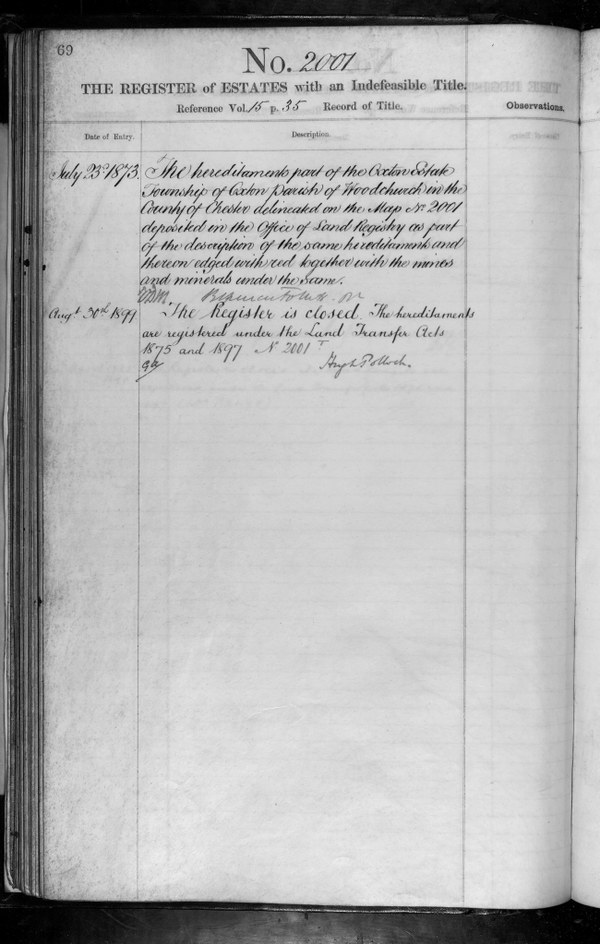 69
No. 2001
THE REGISTER of ESTATES with an Indefeasible Title.
Reference Vol. 15 p. 35 Record of Title.
Observations.
Date of Entry.
Description.
July 23d 1873. The hereditaments part of the Oxton Estate
Township of Oxton Parish of Woodchurch in the
County of Chester delineated on the Map No 2001
deposited in the Office of Land Registry as part
of the description of the same hereditaments and
thereon edged with red together with the mines
and minerals under the same.
Augt 30th 1899 The Register is closed. The hereditaments
are registered under the Land Transfer Acts
1875 and 1897 No 2001
Hugh Pollock.